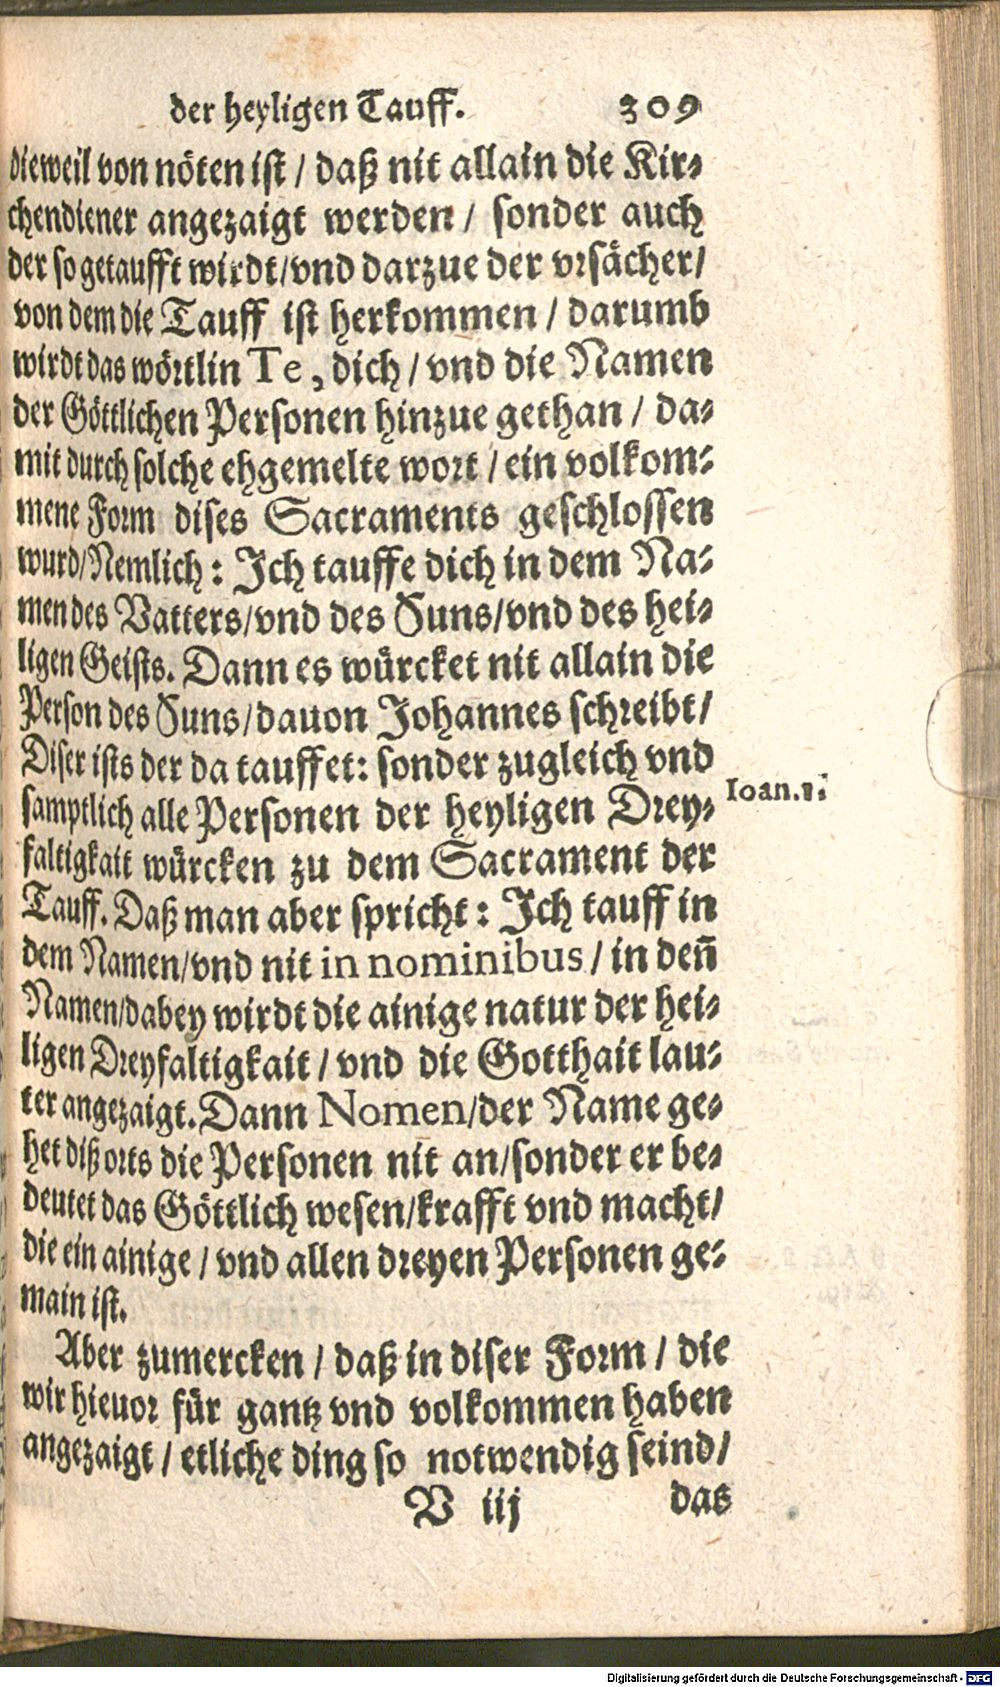 der heyligen Tauff. 309
dieweil von nöten ist / daß nit allain die Kir⸗
chendiener angezaigt werden / sonder auch
der so getaufft wirdt/vnd darzue der vrsächer/
von dem die Tauff ist herkommen / darumb
wirdt das wörtlin Te, dich / vnd die Namen
der Göttlichen Personen hinzue gethan / da⸗
mit durch solche ehgemelte wort / ein volkom⸗
mene Form dises Sacraments geschlossen
wurd/Nemlich: Ich tauffe dich in dem Na⸗
men des Vatters/vnd des Suns/vnd des hei⸗
ligen Geists. Dann es würcket nit allain die
Person des Suns/dauon Johannes schreibt/
Diser ists der da tauffet: sonder zugleich vnd
samptlich alle Personen der heyligen Drey⸗
Ioan.1.
faltigkait würcken zu dem Sacrament der
Tauff. Daß man aber spricht: Ich tauff in
dem Namen/vnd nit in nominibus / in deñ
Namen/dabey wirdt die ainige natur der hei⸗
ligen Dreyfaltigkait / vnd die Gotthait lau⸗
ter angezaigt. Dann Nomen/der Name ge⸗
het diß orts die Personen nit an/sonder er be⸗
deutet das Göttlich wesen/krafft vnd macht/
die ein ainige / vnd allen dreyen Personen ge⸗
main ist.
Aber zumercken / daß in diser Form / die
wir hieuor für gantz vnd volkommen haben
angezaigt / etliche ding so notwendig seind/
V iij das
Digitalisierung gefördert durch die Deutsche Forschungsgemeinschaft - DFG